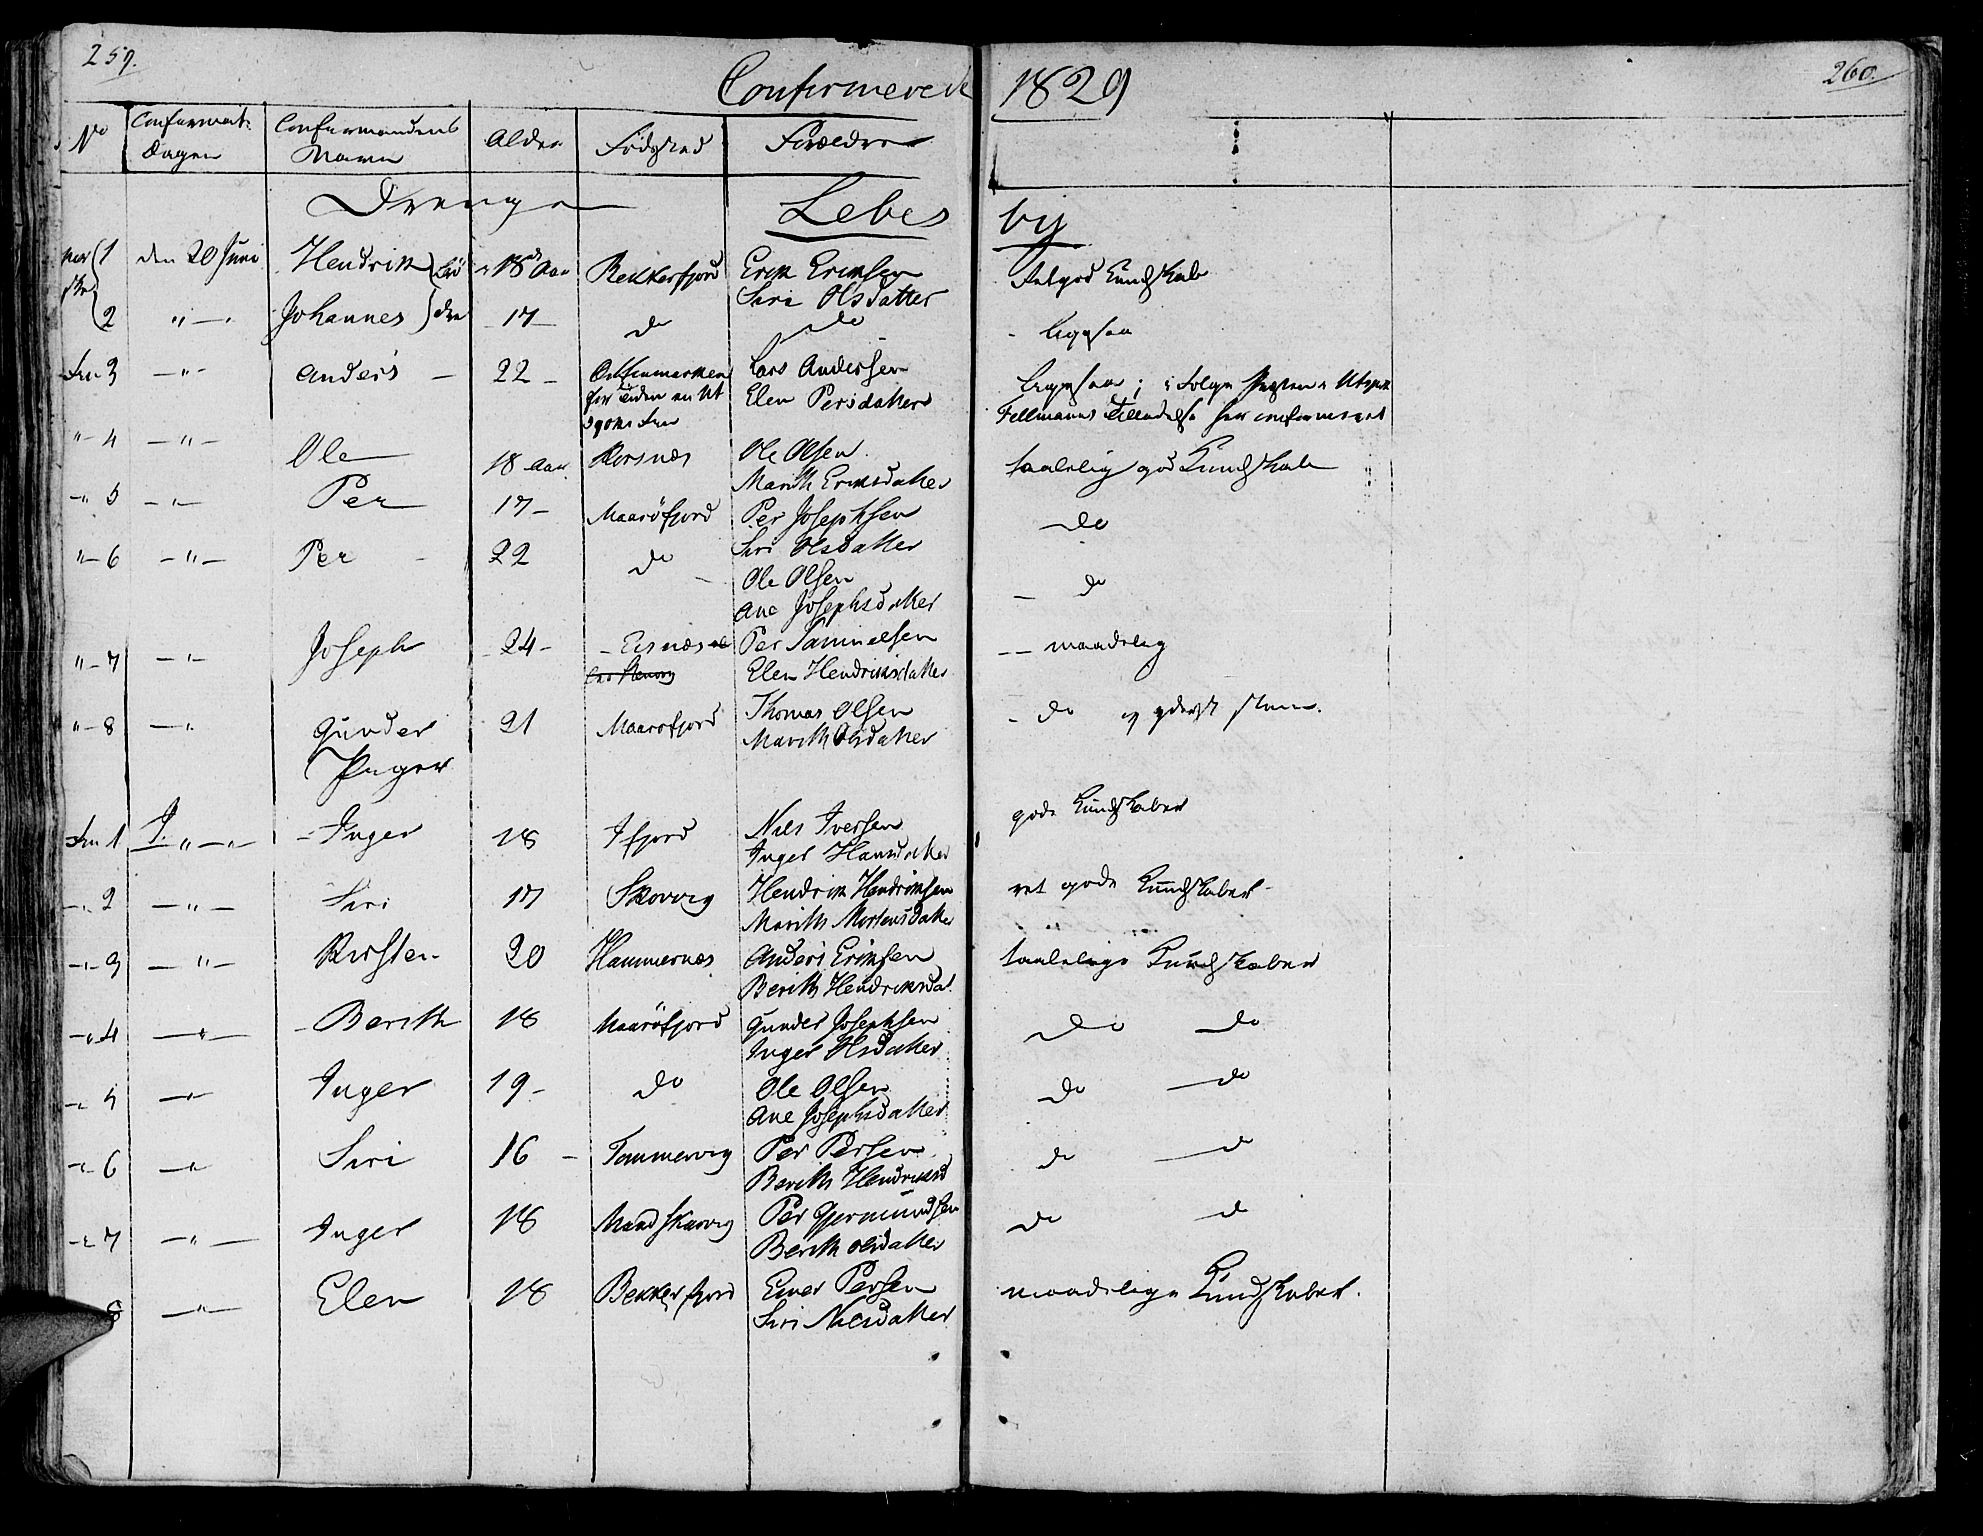 259.
260.
Confirmerede 1829
No
Confirmat: Dagen
Confirmandens Navn
Alder
Fødested
Forældre
Drenge
Lebesby
1 den 20 Juni Hendrik 18 Aar Bekkerfjord Erik Eriksen
Siri Olsdatter
Retgod Kundskab
2 " — Johannes 17 — do do
- ligesaa
Fin 3 — " — Anders — 22 —
Lars Andersen
Elen Persdatter
ligesaa; i Følge
Fellmans Tilladelse her confirmeret
" 4 — " — Ole 18 Aar Korsnæs Ole Olsen
Marith Eriksdatter
taalelig god Kundskab
" 5 — " — Per 17 — Maarøfjord Per Josephsen
Siri Olsdatter
do
" 6 — " — Per — 22 do
Ole Olsen
Ane Josephsdatter
— do
" 7 — " — Joseph 24 — Per Samuelsen
Elen Hendriksdatter
— — maadelig
" 8 — " Gunder 21 Maarøfjord Thomas Olsen
Marith Olsdatter
- do og
Piger
Fin 1 — " — Inger 18 Ifjord Niels Iversen
Inger Hansdatter
gode Kundskaber
— " 2 — " — Siri 17 Skovvig Hendrik Hendriksen
Marith Mortensdatter
ret gode Kundskaber
— " 3 — " — Kirsten 20 Hammernæs Anders Eriksen
Berith Hendriksdat
taalelige Kundskaber
— " 4 — " — Berith 18 Maarøfjord Gunder Josephsen
Inger Olsdatter
do do
— " 5 — " — Inger 19 — do Ole Olsen
Ane Josephsdatter
do — do
— " 6 — " — Siri 16 — Tommervig Per Persen
Berith Hendriksd
do — do
— " 7 — " — Inger 18 Mandskarvig Per Gjermundsen
Berith Olsdatter
do do
8 — " — Elen 18 Bekkerfjord Einer Persen
Siri Nielsdatter
maadelige Kundskaber.